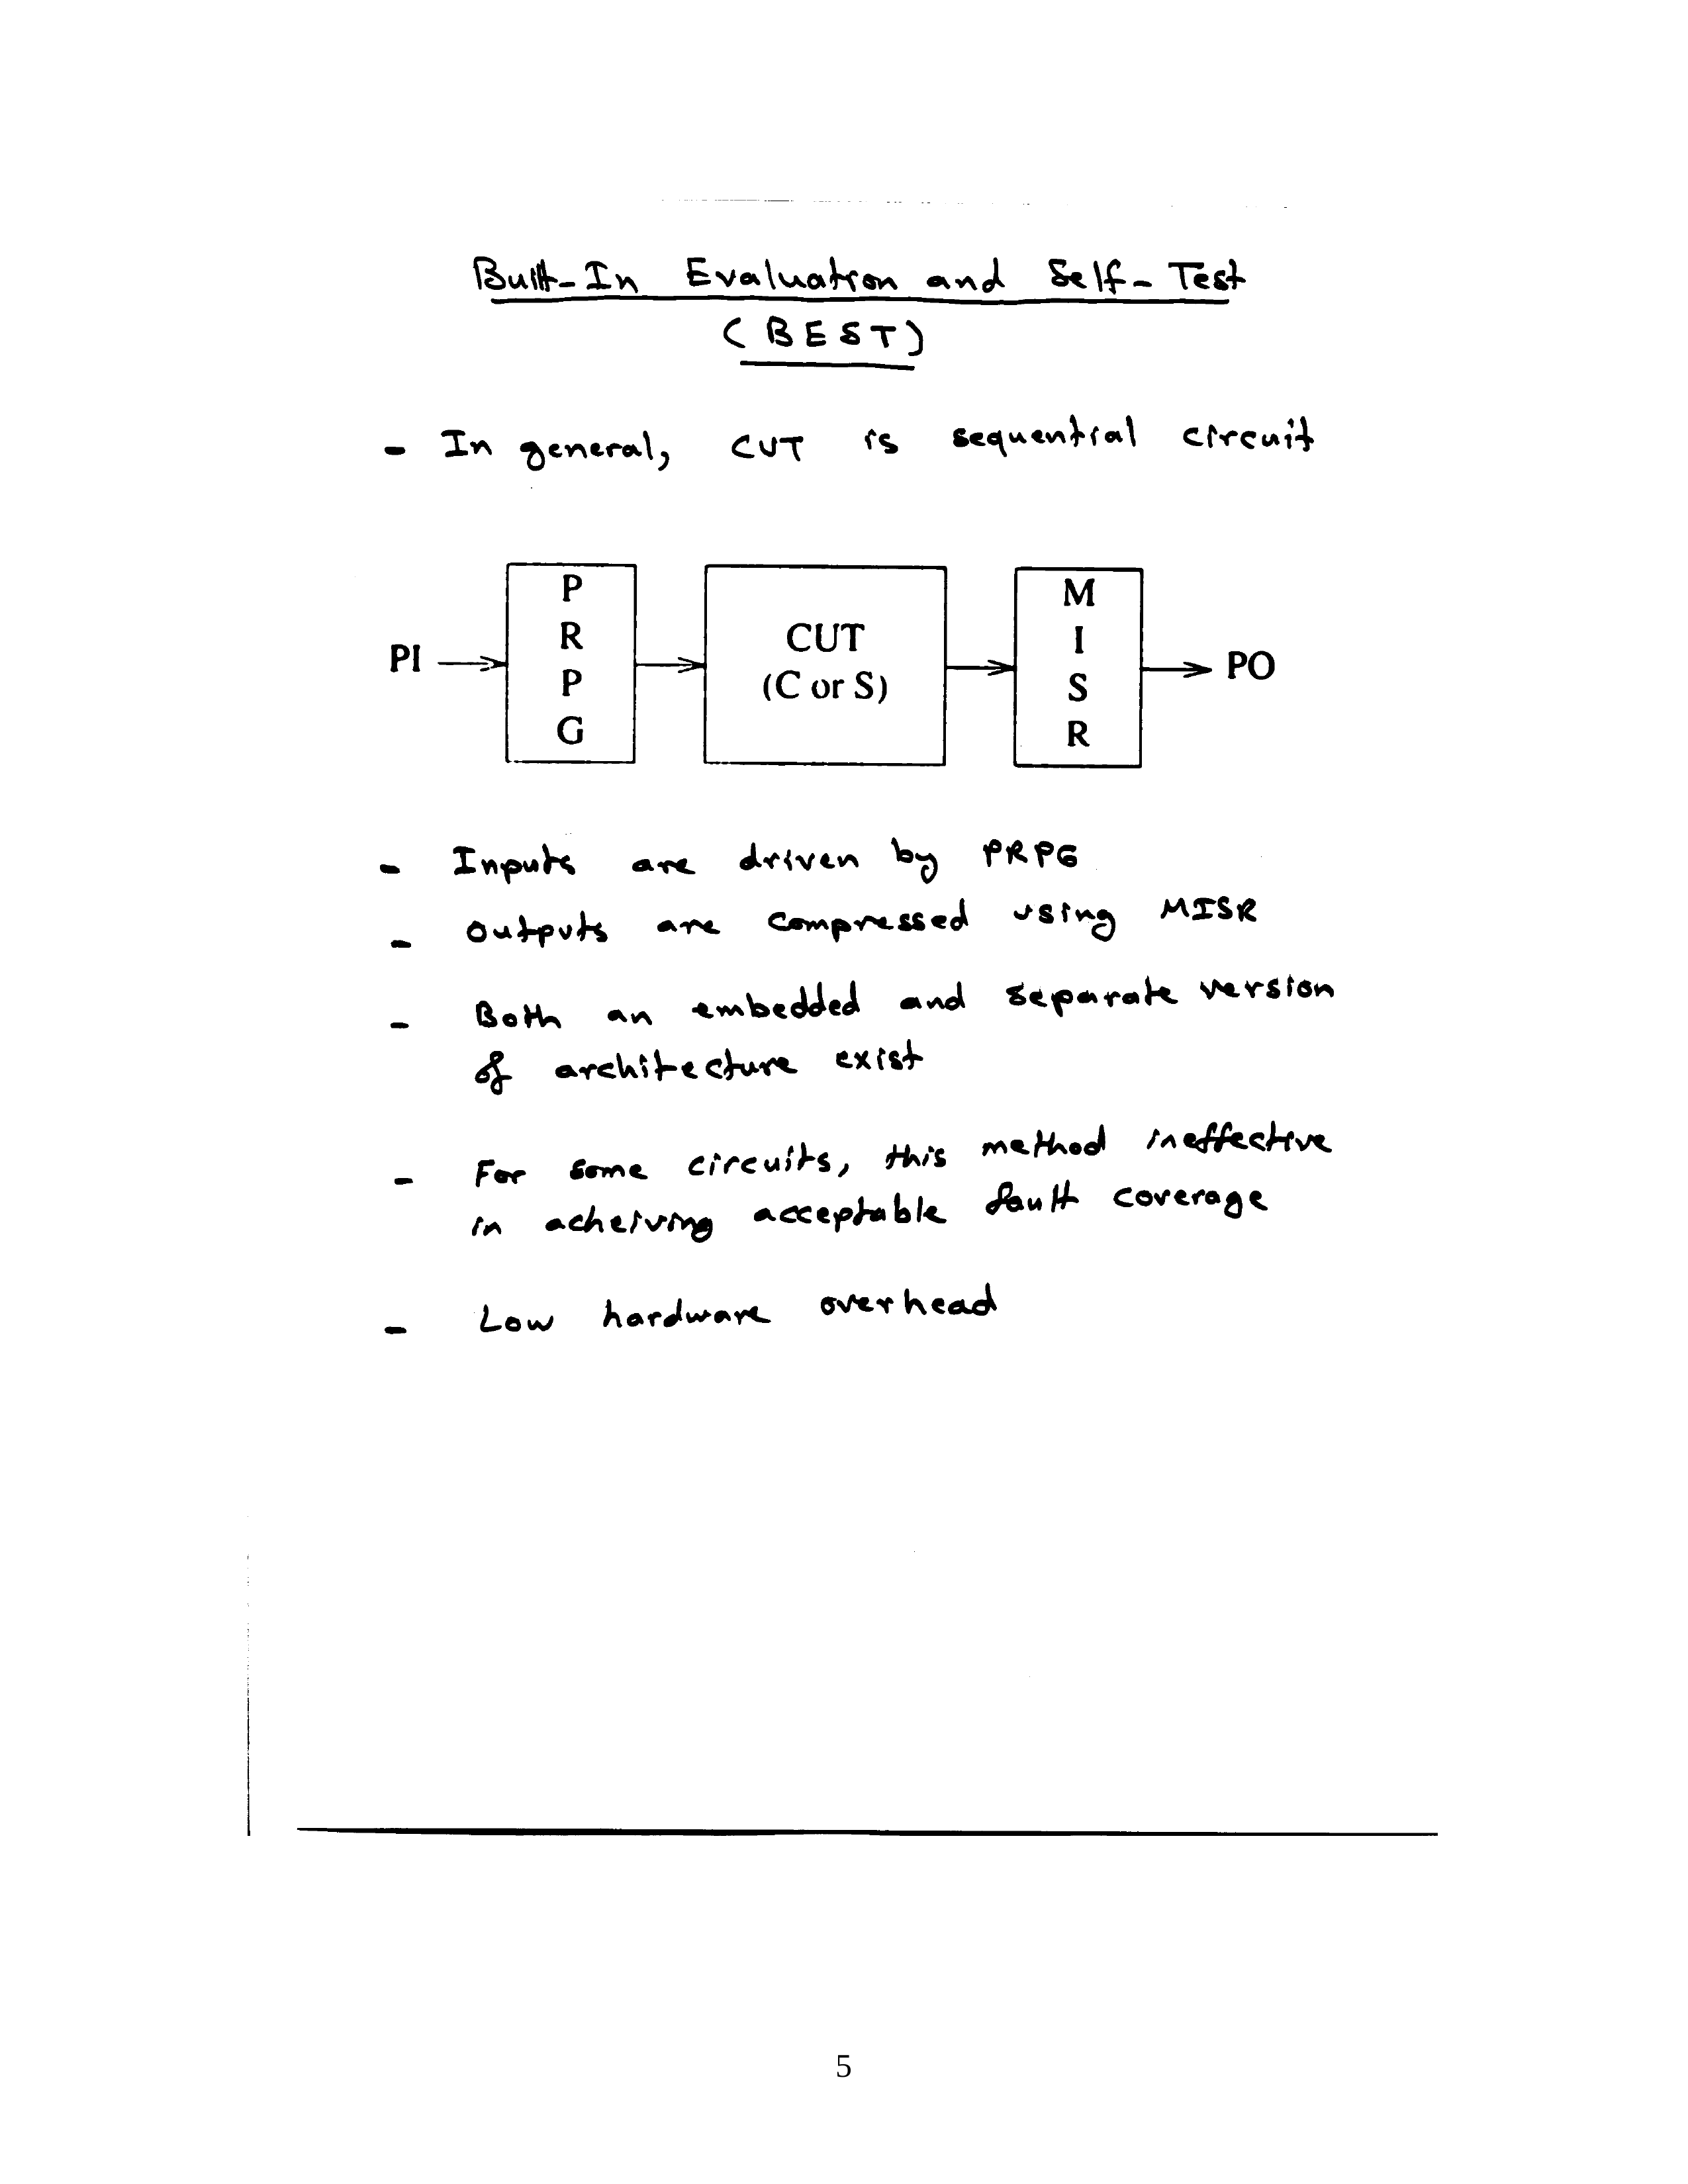 Built-In Evaluation and Self-Test
(BEST)
- In general, CUT is sequential circuit
P
R
P
G
CUT
(C or S)
M
I
S
R
PI
PO
- Inputs are driven by PRPG
- Outputs are compressed using MISR
- Both an embedded and separate version
of architecture exist
- For some circuits, this method ineffective
in acheiving acceptable fault coverage
- Low hardware overhead
5